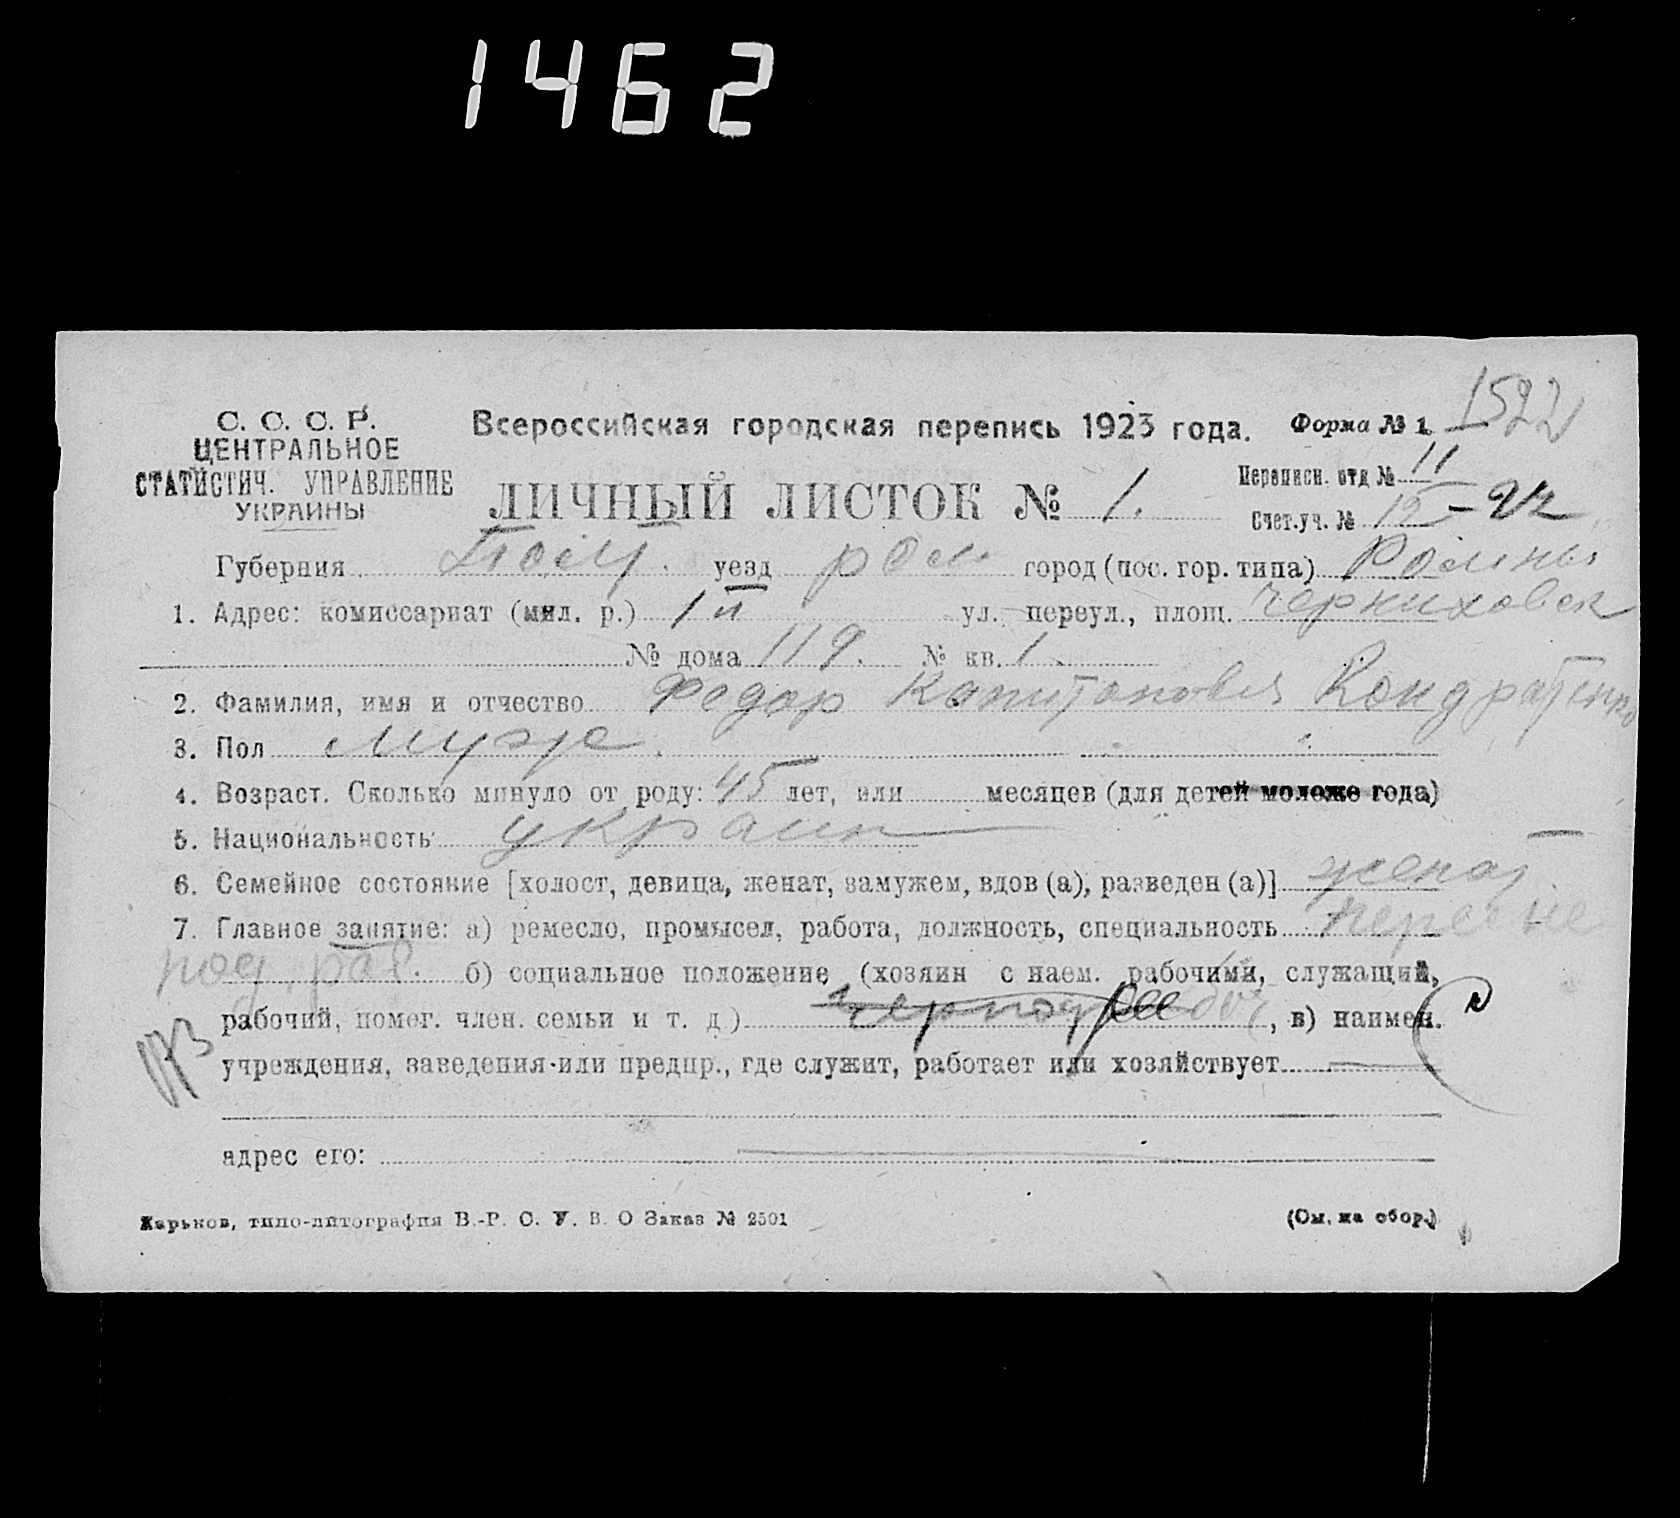 1462
1522
С. С. С. Р.
ЦЕНТРАЛЬНОЕ
СТАТИСТИЧ. УПРАВЛЕНИЕ
УКРАИНЫ
Всероссийская городская перепись 1923 года. Форма № 1
ЛИЧНЫЙ ЛИСТОК № 1.
Переписн. отд № 11
Счет.уч. №
Губерния Полт. уезд ром город (пос. гор. типа) Ромны
1. Адрес: комиссариат (мил. р.) 1й ул. переул., площ. Черниховск
№ дома 119. № кв. 1.
2. Фамилия, имя и отчество Федор Капитанович Кондратенко
3. Пол Муж.
4. Возраст. Сколько минуло от роду: 45 лет, или месяцев (для детей моложе года)
5. Национальность украин
6. Семейное состояние [холост, девица, женат, замужем, вдов (а), разведен (а)] женат
7. Главное занятие: а) ремесло, промысел, работа, должность, специальность
под. раб. б) социальное положение (хозяин с наем. рабочими, служащий,
рабочий, помог. член. семьи и т. д) , в) наимен.
учреждения, заведения-или предпр., где служит, работает или хозяйствует
адрес его:
Харьков, типо-литография В.-Р. С. У. В. О Заказ № 2501 (См. на обор.)